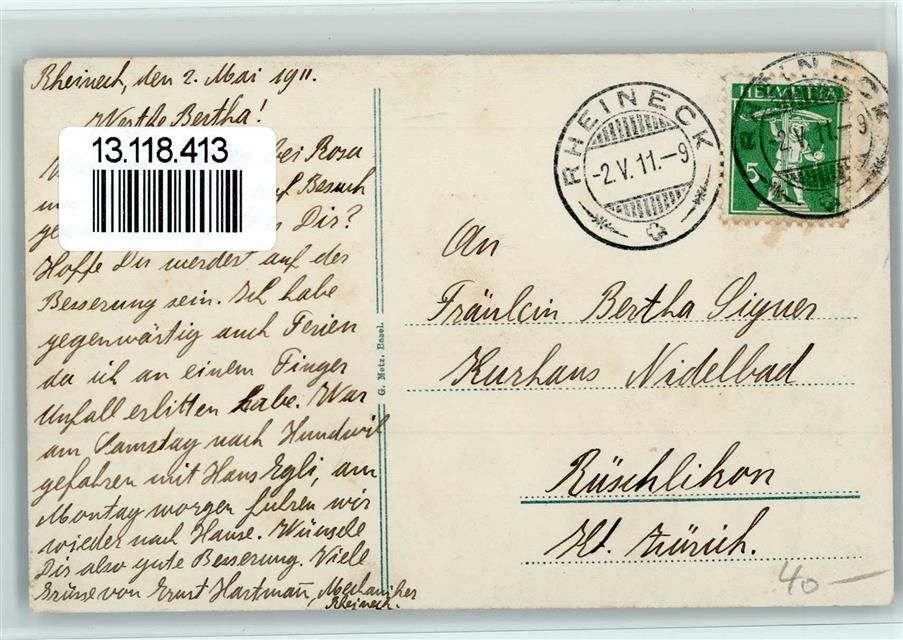 Rheineck, den 2. Mai 1911.
Werthe Bertha!
bei Rosa
auf Besuch
Dir?
Hoffe Du werdest auf der
Besserung sein. Ich habe
gegenwärtig auch Ferien
da ich an einem Finger
Unfall erlitten habe. War
am Samstag nach Hundwil
gefahren mit Hans Egli, am
Montag morgen fuhren wir
wieder nach Hause. Wünsche
Dir also gute Besserung. Viele
Grüsse von Ernst Hartmann, Mechaniker
Rheineck.
13.118.413
G. Metz, Basel.
RHEINECK
-2.V.11.-9
HELVETIA
5
RHEINECK
-2.V.11.-9
An
Fräulein Bertha Signer
Kurhaus Nidelbad
Rüschlikon
Kt. Zürich.
40 —